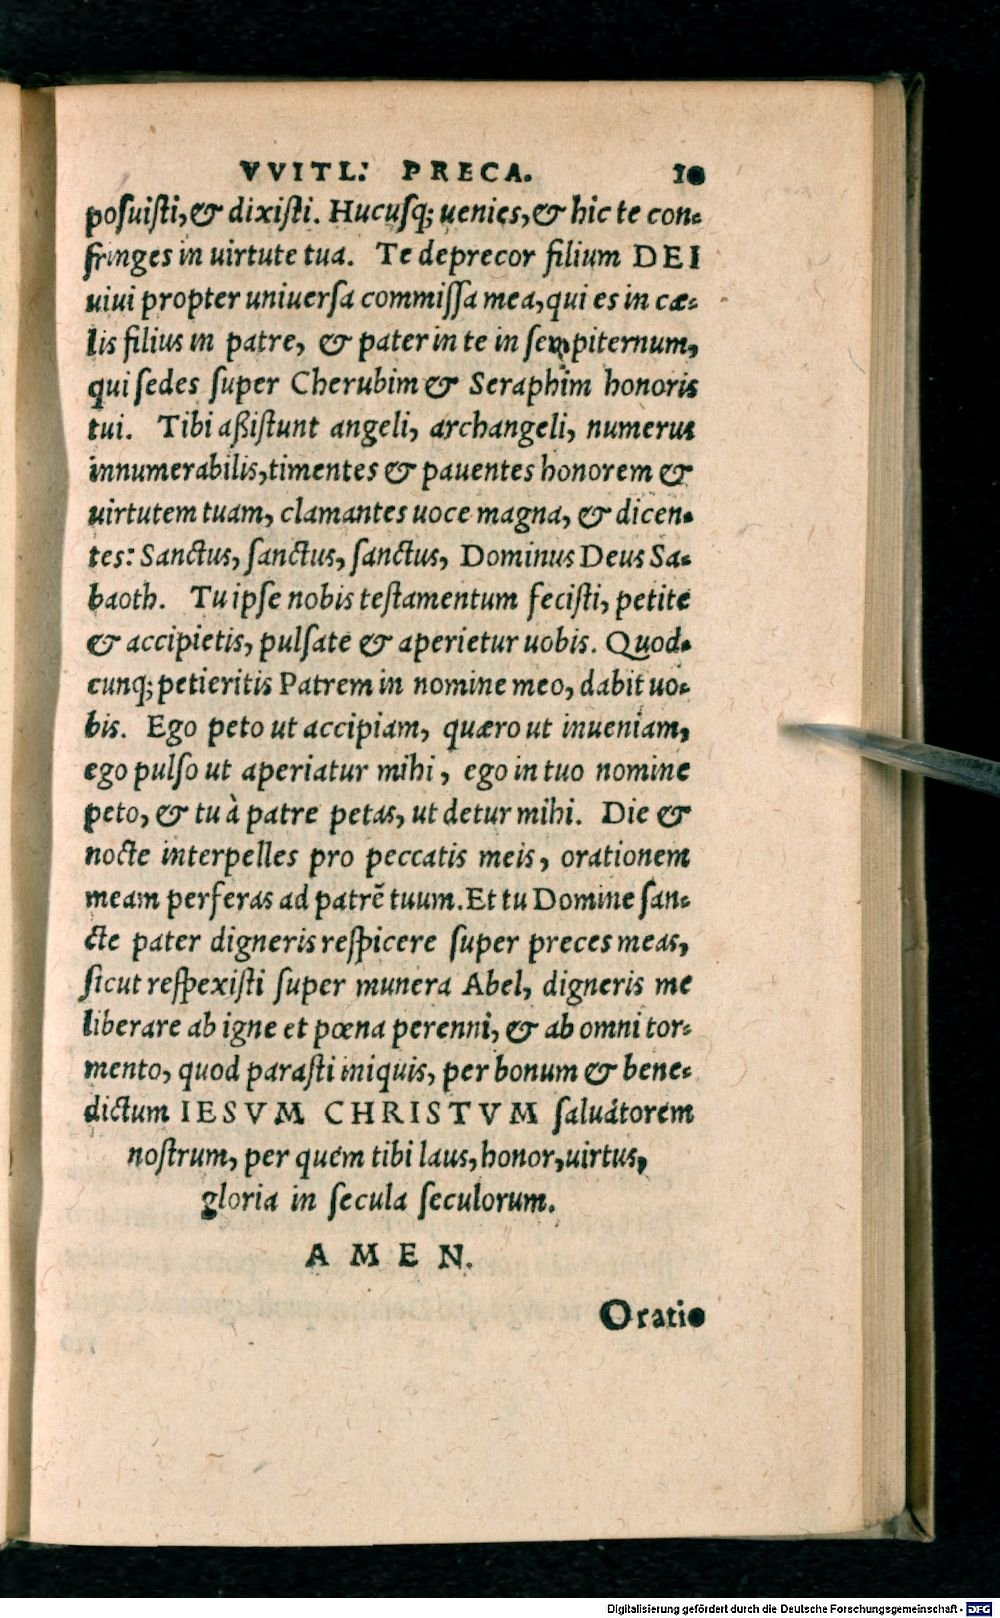 VVITL: PRECA. 10
posuisti, & dixisti. Hucusq; uenies, & hic te con-
fringes in uirtute tua. Te deprecor filium DEI
uiui propter uniuersa commissa mea, qui es in cæ-
lis filius in patre, & pater in te in sempiternum,
qui sedes super Cherubim & Seraphim honoris
tui. Tibi aßistunt angeli, archangeli, numerus
innumerabilis, timentes & pauentes honorem &
uirtutem tuam, clamantes uoce magna, & dicen-
tes: Sanctus, sanctus, sanctus, Dominus Deus Sa-
baoth. Tu ipse nobis testamentum fecisti, petite
& accipietis, pulsate & aperietur uobis. Quod-
cunq; petieritis Patrem in nomine meo, dabit uo-
bis. Ego peto ut accipiam, quæro ut inueniam,
ego pulso ut aperiatur mihi, ego in tuo nomine
peto, & tu à patre petas, ut detur mihi. Die &
nocte interpelles pro peccatis meis, orationem
meam perferas ad patrē tuum. Et tu Domine san-
cte pater digneris respicere super preces meas,
sicut respexisti super munera Abel, digneris me
liberare ab igne et pœna perenni, & ab omni tor-
mento, quod parasti iniquis, per bonum & bene-
dictum IESVM CHRISTVM saluatorem
nostrum, per quem tibi laus, honor, uirtus,
gloria in secula seculorum.
AMEN.
Oratio
Digitalisierung gefördert durch die Deutsche Forschungsgemeinschaft - DFG